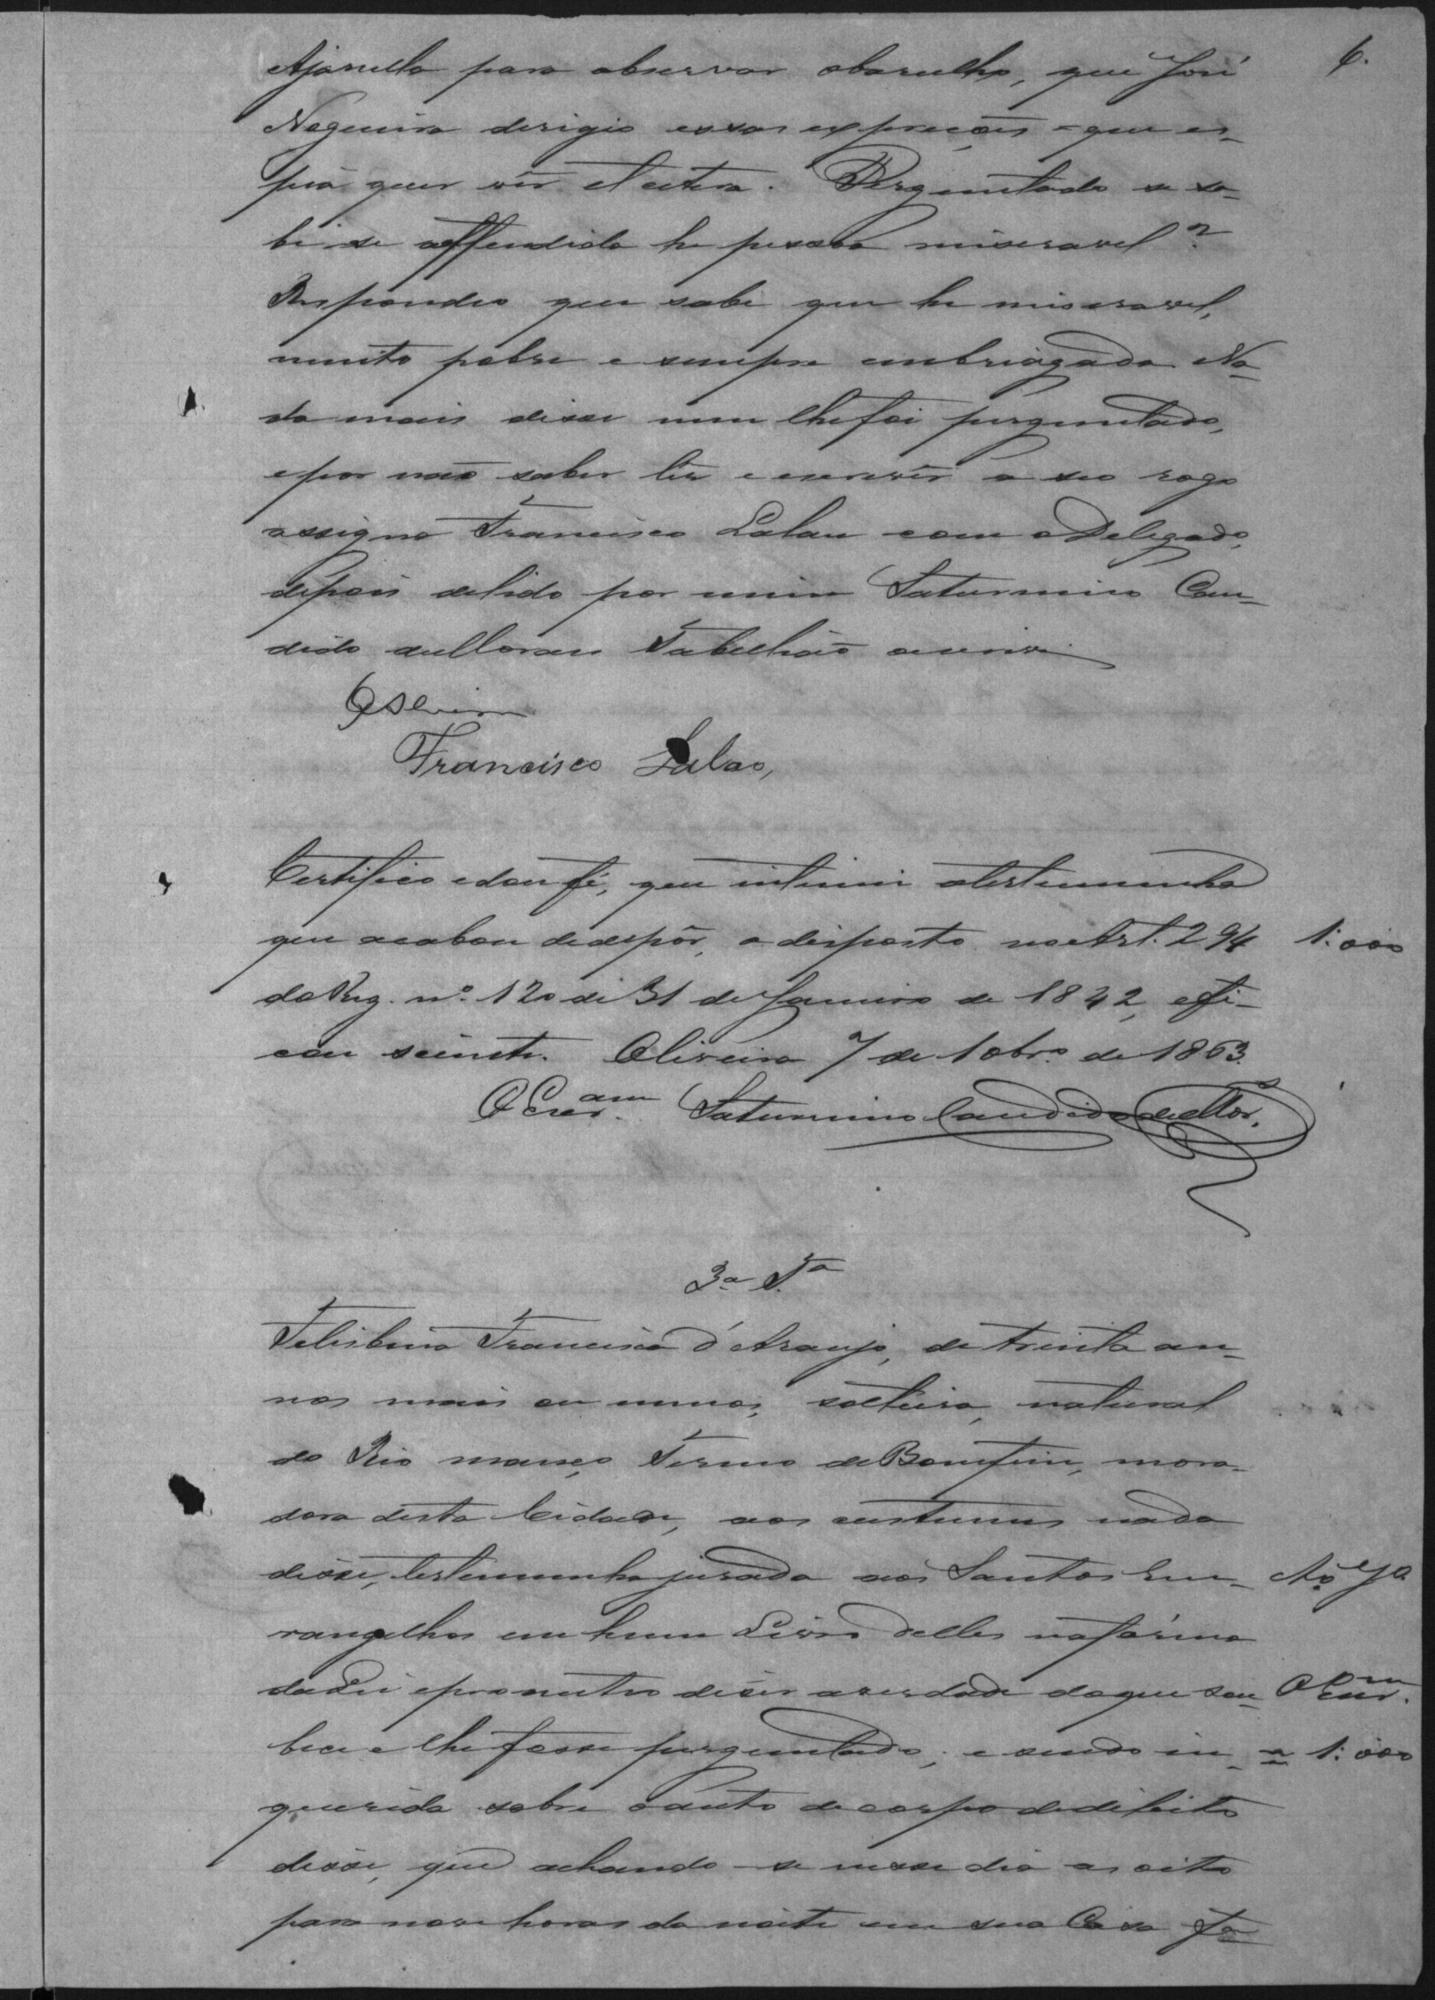 6.
Ajanella para observar obarulho, que José
Nogueira dirigio essas expreções = que es-
pere quer ver et cetera. Perguntado se sa-
be se offendido he pessoa miseravel?
Respondeo que sabe que he miseravel,
muito pobre e sempre embriagado. Na-
da mais disse nem lhe foi perguntado,
epor não saber lêr e escrever a seo rogo
assigna Francisco Lalau com o Delegado,
depois delido por mim Saturnino Can-
dido deMoraes Tabellião escrevi
Francisco Lalao,
Certifico edou fé, que intimei atestemunha
que acabou dedepôr, o disposto no Art. 294 1:000
do Reg. nº. 120 de 31 de Janeiro de 1842, efi-
cou sciente. Oliveira 7 de 10br.º de 1863.
O Escr.am Saturnino Candido de Mor.
3ª Tª
Felisbina Francisca d'Araujo, de trinta an-
nos mais ou menos, solteira, natural
do Rio manço Termo do Bomfim, mora-
dora desta Cidade, aos custumes nada
disse, testemunha jurada aos Santos Eu-
vangelhos em hum Livro delles na fórma
da Lei eprometteo diser averdade doque sou- O Escr.m
besse e lhe fosse perguntado; e sendo in- 1:000
querida sobre o auto de corpo dedelicto
disse, que achando-se nesse dia as oito
para nove horas da noite em sua Casa